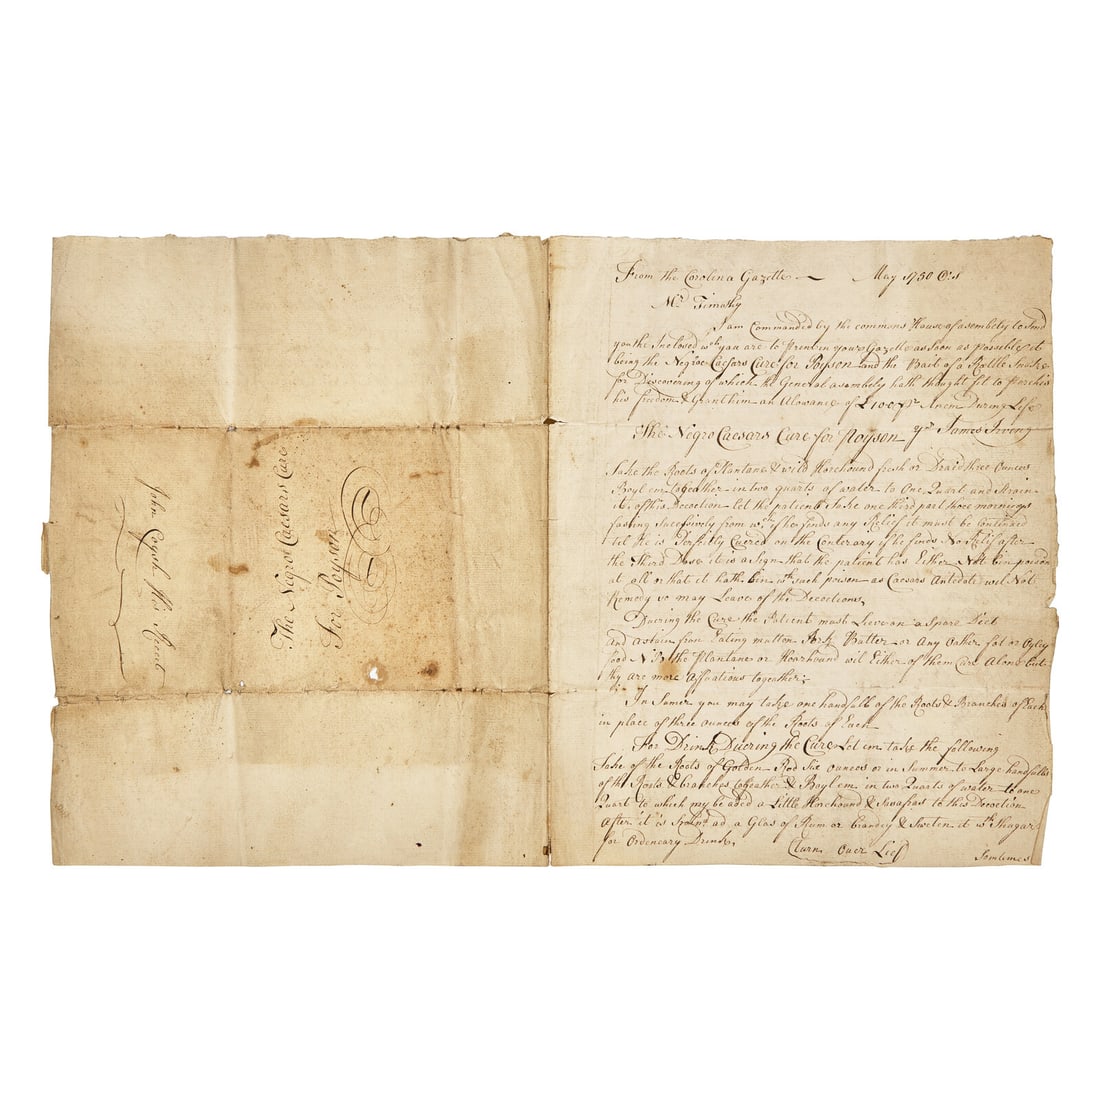 John Cogsh His Recet
The Negroe Caesars Cure
For Poyson
From the Corolina Gazette — May 1750
Mr. Timothy
I am Commanded by the commons House of asembely to Send
you the Inclosed wch you are to Print in your Gazette as Soon as possible it
being the Negroe Caesars Cure for Poyson and the Bait of a Rattle Snake
for Discovering of which the General asembely hath thought fit to Purchis
his freedom & Grant him an Alowance of £100 pr Anem During Life
The Negro Caesars Cure for Poyson yrs James Irving
Take the Roots of Plantane & wild Horehound fresh or Draid three Ounces
Boyl em togeather in two quarts of water to One Quart and Strain
it, of this Decoction Let the patient Take one third part three mornings
fasting Sucessively from wch if he finds any Relief it must be Continued
til He is Perfitly Cuered on the Conterary if he finds No Relif after
the Third Dose it is a Sign that the patient has Either Not bin poison
at all or that it hath bin wth such poison as Caesars Antedote wil Not
Remedy so may Leave of the Decoctions,
Duering the Cure the Patient must Lieve on a Spare Diet
and abstain from Eating mutton Pork Butter or Any Other fat or Oyley
food NB the Plantane or Hoorhound wil Either of them Cure Alone but
thy are more Affuatious togeather;
In Sumer you may take one handfull of the Roots & Branches of Each
in place of three ounces of the Roots of Each
For Drink Duering the Cure Let em take the following
Take of the Roots of Golden Rod Six ounces or in Summer to Large handfulls
of the Roots & branches togeather & Boyl em in two Quarts of water to one
Quart to which my be aded a Little Horehound & Sasafras to this Decoction
After it is Straind ad a Glas of Rum or brandey & Sweten it wth Shugar
for Ordeneary Drink,
(Turn Over Lief
Somtimes